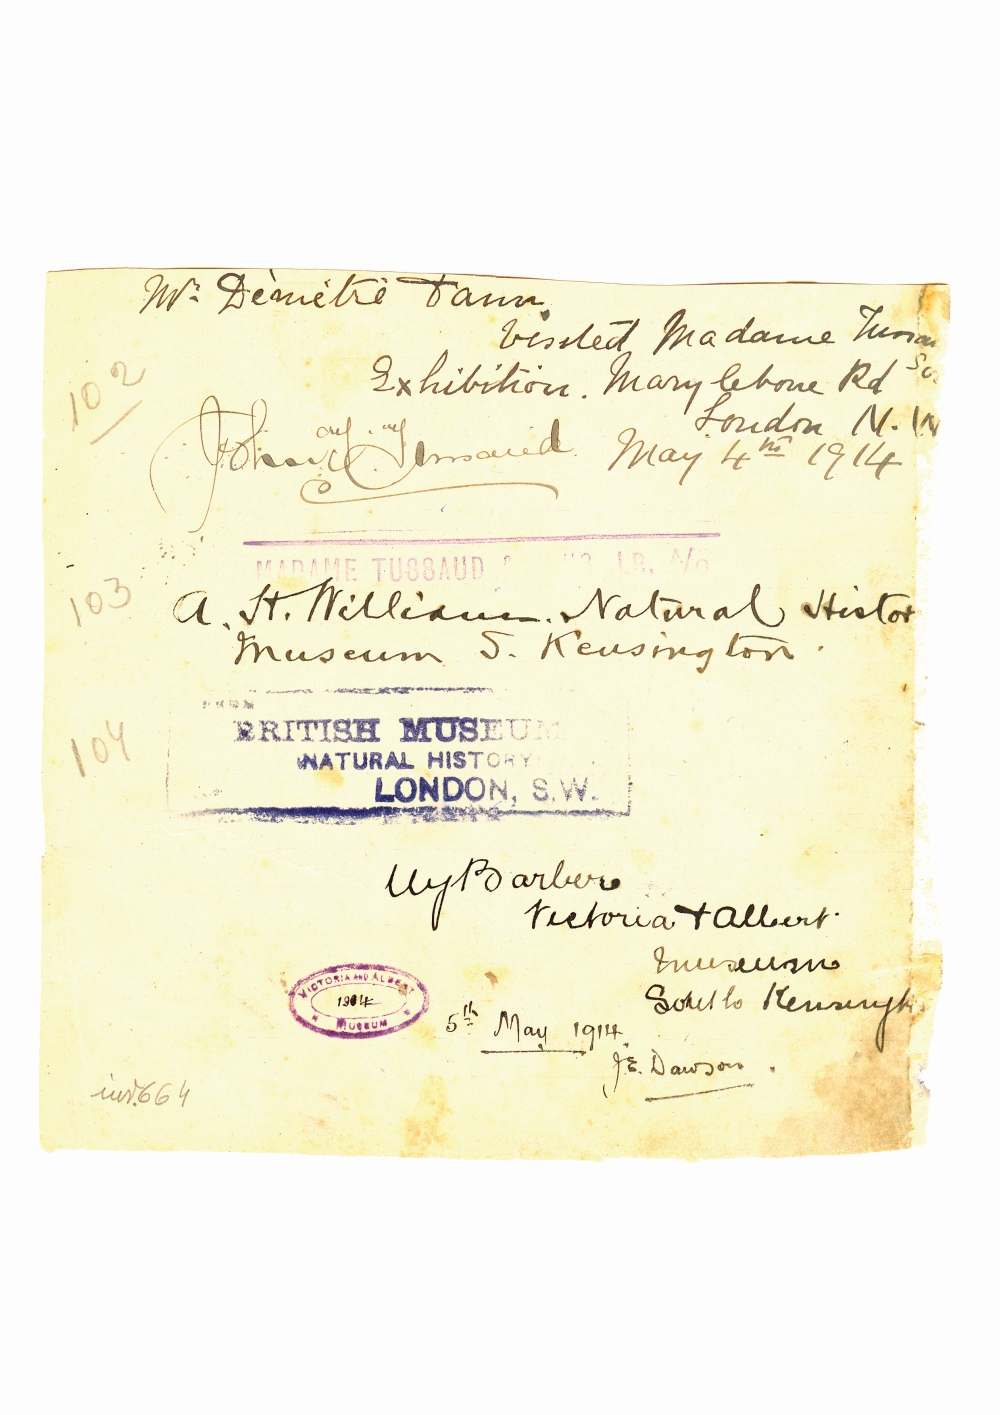 Mr. Dèmètrè Dann
Visited Madame Tussau
Exhibition. Marylebone Rd
London N.W
102
John Tussaud May 4th 1914
MADAME TUSSAUD
103
A. H. William. Natural Histor
Museum S. Kensington.
104
BRITISH MUSEUM
NATURAL HISTORY
LONDON, S.W.
Barber
Victoria & Albert
Museum
South Kensingt
VICTORIA AND ALBERT
1914
MUSEUM
5th May 1914
J.E. Dawson.
inv. 664